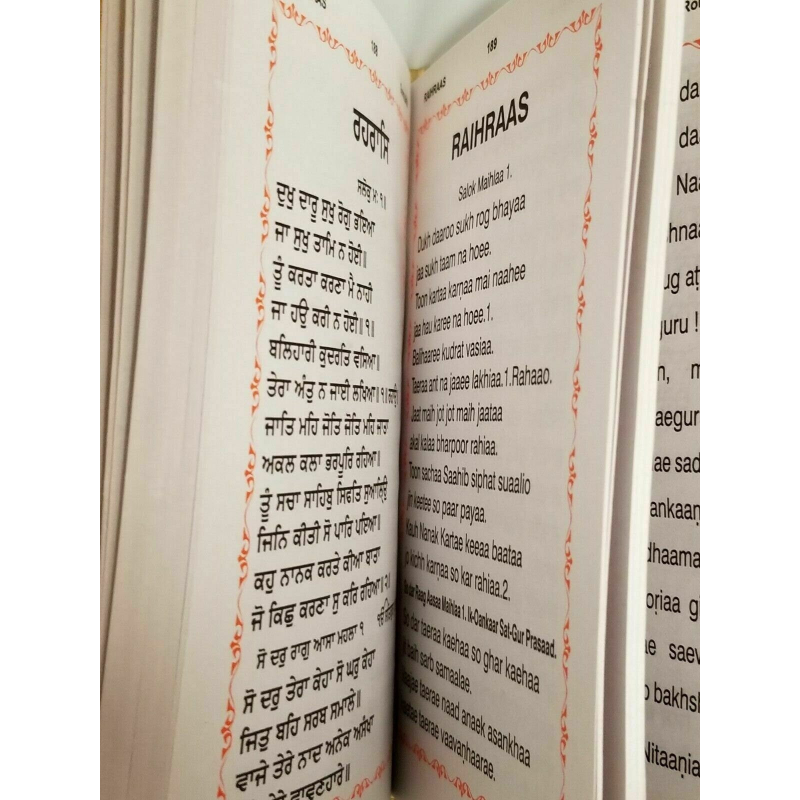 188
ਰਹਰਾਸਿ
ਸਲੋਕੁ ਮਃ ੧॥
ਦੁਖੁ ਦਾਰੂ ਸੁਖੁ ਰੋਗੁ ਭਇਆ
ਜਾ ਸੁਖੁ ਤਾਮਿ ਨ ਹੋਈ॥
ਤੂੰ ਕਰਤਾ ਕਰਣਾ ਮੈ ਨਾਹੀ
ਜਾ ਹਉ ਕਰੀ ਨ ਹੋਈ॥੧॥
ਬਲਿਹਾਰੀ ਕੁਦਰਤਿ ਵਸਿਆ
ਤੇਰਾ ਅੰਤੁ ਨ ਜਾਈ ਲਖਿਆ॥੧॥
ਜਾਤਿ ਮਹਿ ਜੋਤਿ ਜੋਤਿ ਮਹਿ ਜਾਤਾ
ਅਕਲ ਕਲਾ ਭਰਪੂਰਿ ਰਹਿਆ॥
ਤੂੰ ਸਚਾ ਸਾਹਿਬੁ ਸਿਫਤਿ ਸੁਆਲਿ੍ਉ
ਜਿਨਿ ਕੀਤੀ ਸੋ ਪਾਰਿ ਪਇਆ॥
ਕਹੁ ਨਾਨਕ ਕਰਤੇ ਕੀਆ ਬਾਤਾ
ਜੋ ਕਿਛੁ ਕਰਣਾ ਸੁ ਕਰਿ ਰਹਿਆ॥੨॥
ਸੋ ਦਰੁ ਰਾਗੁ ਆਸਾ ਮਹਲਾ ੧
ਸੋ ਦਰੁ ਤੇਰਾ ਕੇਹਾ ਸੋ ਘਰੁ ਕੇਹਾ
ਜਿਤੁ ਬਹਿ ਸਰਬ ਸਮਾਲੇ॥
ਵਾਜੇ ਤੇਰੇ ਨਾਦ ਅਨੇਕ ਅਸੰਖਾ
ਤੇਰੇ ਵਾਵਣਹਾਰੇ॥
RAIHRAAS 189
RAIHRAAS
Salok Maihlaa 1.
Dukh daaroo sukh rog bhayaa
jaa sukh taam na hoee.
Toon kartaa karṇaa mai naahee
jaa hau karee na hoee.1.
Balihaaree kudrat vasiaa.
Taeraa ant na jaaee lakhiaa.1.Rahaao.
Jaat maih jot jot maih jaataa
akal kalaa bharpoor rahiaa.
Toon sachaa Saahib siphat suaalio
jin keetee so paar payaa.
Kauh Nanak Kartae keeaa baataa
jo kichh karṇaa so kar rahiaa.2.
So dar Raag Aasaa Maihlaa 1. Ik-Oankaar Sat-Gur Prasaad.
So dar taeraa kaehaa so ghar kaehaa
baih sarb samaalae.
taerae naad anaek asankhaa
taerae vaavaṇhaarae.